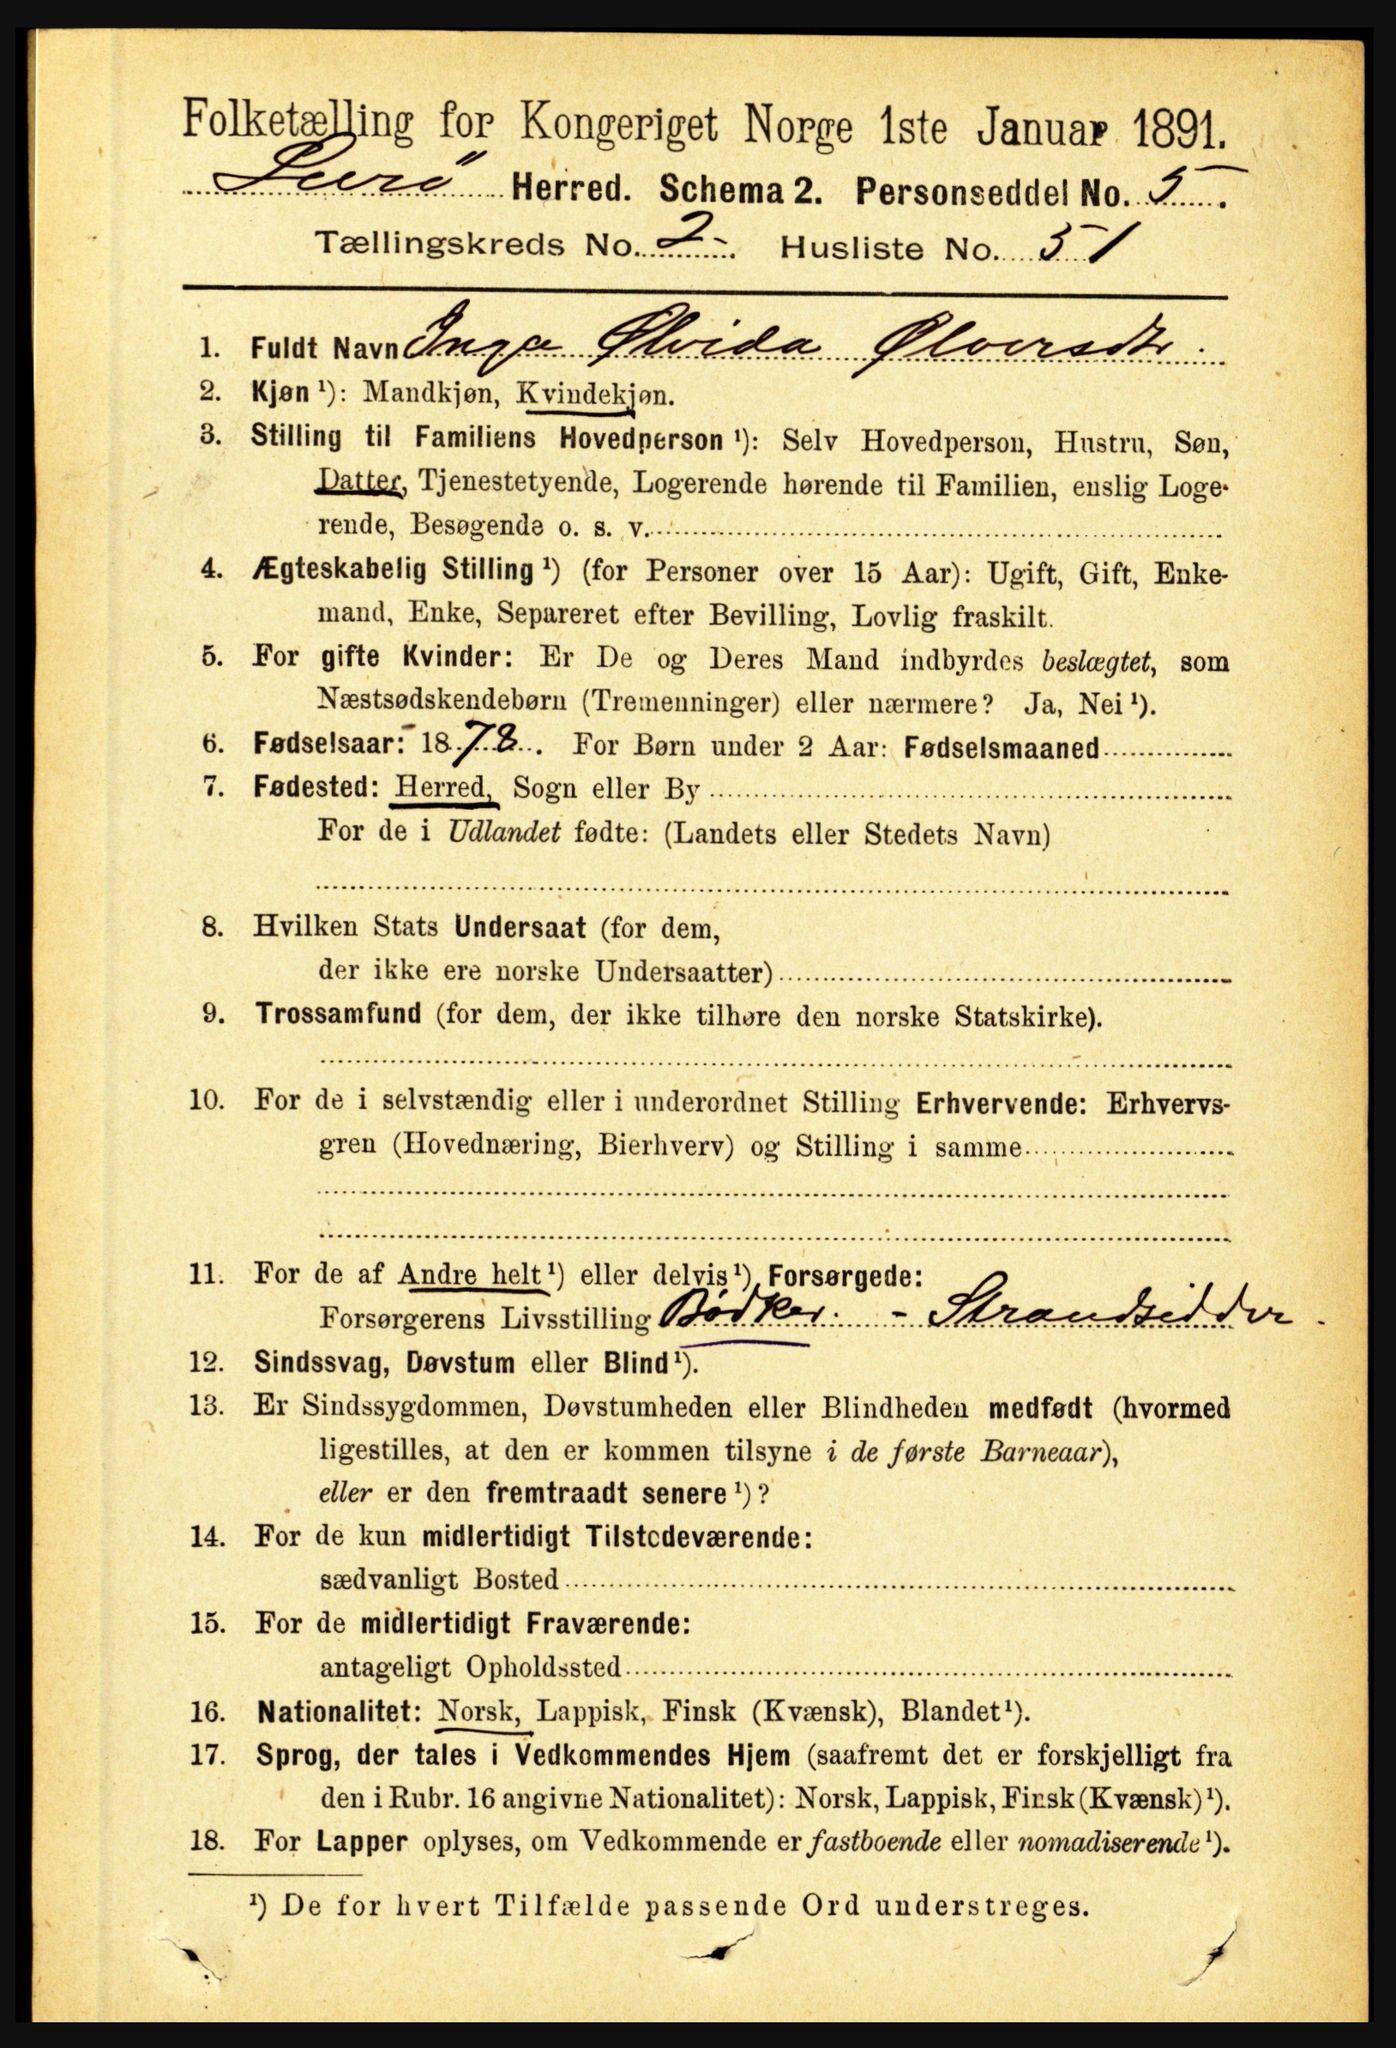 Folketælling for Kongeriget Norge 1ste Januar 1891.
Lurö Herred. Schema 2. Personseddel No. 5.
Tællingskreds No. 2. Husliste No. 51
1. Fuldt Navn Inga Ølvida Ølversdtr.
2. Kjøn ¹): Mandkjøn, Kvindekjøn.
3. Stilling til Familiens Hovedperson ¹): Selv Hovedperson, Hustru, Søn,
Datter, Tjenestetyende, Logerende hørende til Familien, enslig Loge-
rende, Besøgende o. s. v.
4. Ægteskabelig Stilling ¹) (for Personer over 15 Aar): Ugift, Gift, Enke-
mand, Enke, Separeret efter Bevilling, Lovlig fraskilt.
5. For gifte Kvinder: Er De og Deres Mand indbyrdes beslægtet, som
Næstsødskendebørn (Tremenninger) eller nærmere? Ja, Nei ¹).
6. Fødselsaar: 1878. For Børn under 2 Aar: Fødselsmaaned
7. Fødested: Herred, Sogn eller By
For de i Udlandet fødte: (Landets eller Stedets Navn)
8. Hvilken Stats Undersaat (for dem,
der ikke ere norske Undersaatter)
9. Trossamfund (for dem, der ikke tilhøre den norske Statskirke).
10. For de i selvstændig eller i underordnet Stilling Erhvervende: Erhvervs-
gren (Hovednæring, Bierhverv) og Stilling i samme
11. For de af Andre helt ¹) eller delvis ¹) Forsørgede:
Forsørgerens Livsstilling Bødker. - Strandsidder.
12. Sindssvag, Døvstum eller Blind ¹).
13. Er Sindssygdommen, Døvstumheden eller Blindheden medfødt (hvormed
ligestilles, at den er kommen tilsyne i de første Barneaar),
eller er den fremtraadt senere ¹)?
14. For de kun midlertidigt Tilstedeværende:
sædvanligt Bosted
15. For de midlertidigt Fraværende:
antageligt Opholdssted
16. Nationalitet: Norsk, Lappisk, Finsk (Kvænsk), Blandet ¹).
17. Sprog, der tales i Vedkommendes Hjem (saafremt det er forskjelligt fra
den i Rubr. 16 angivne Nationalitet): Norsk, Lappisk, Finsk (Kvænsk) ¹).
18. For Lapper oplyses, om Vedkommende er fastboende eller nomadiserende ¹).
¹) De for hvert Tilfælde passende Ord understreges.